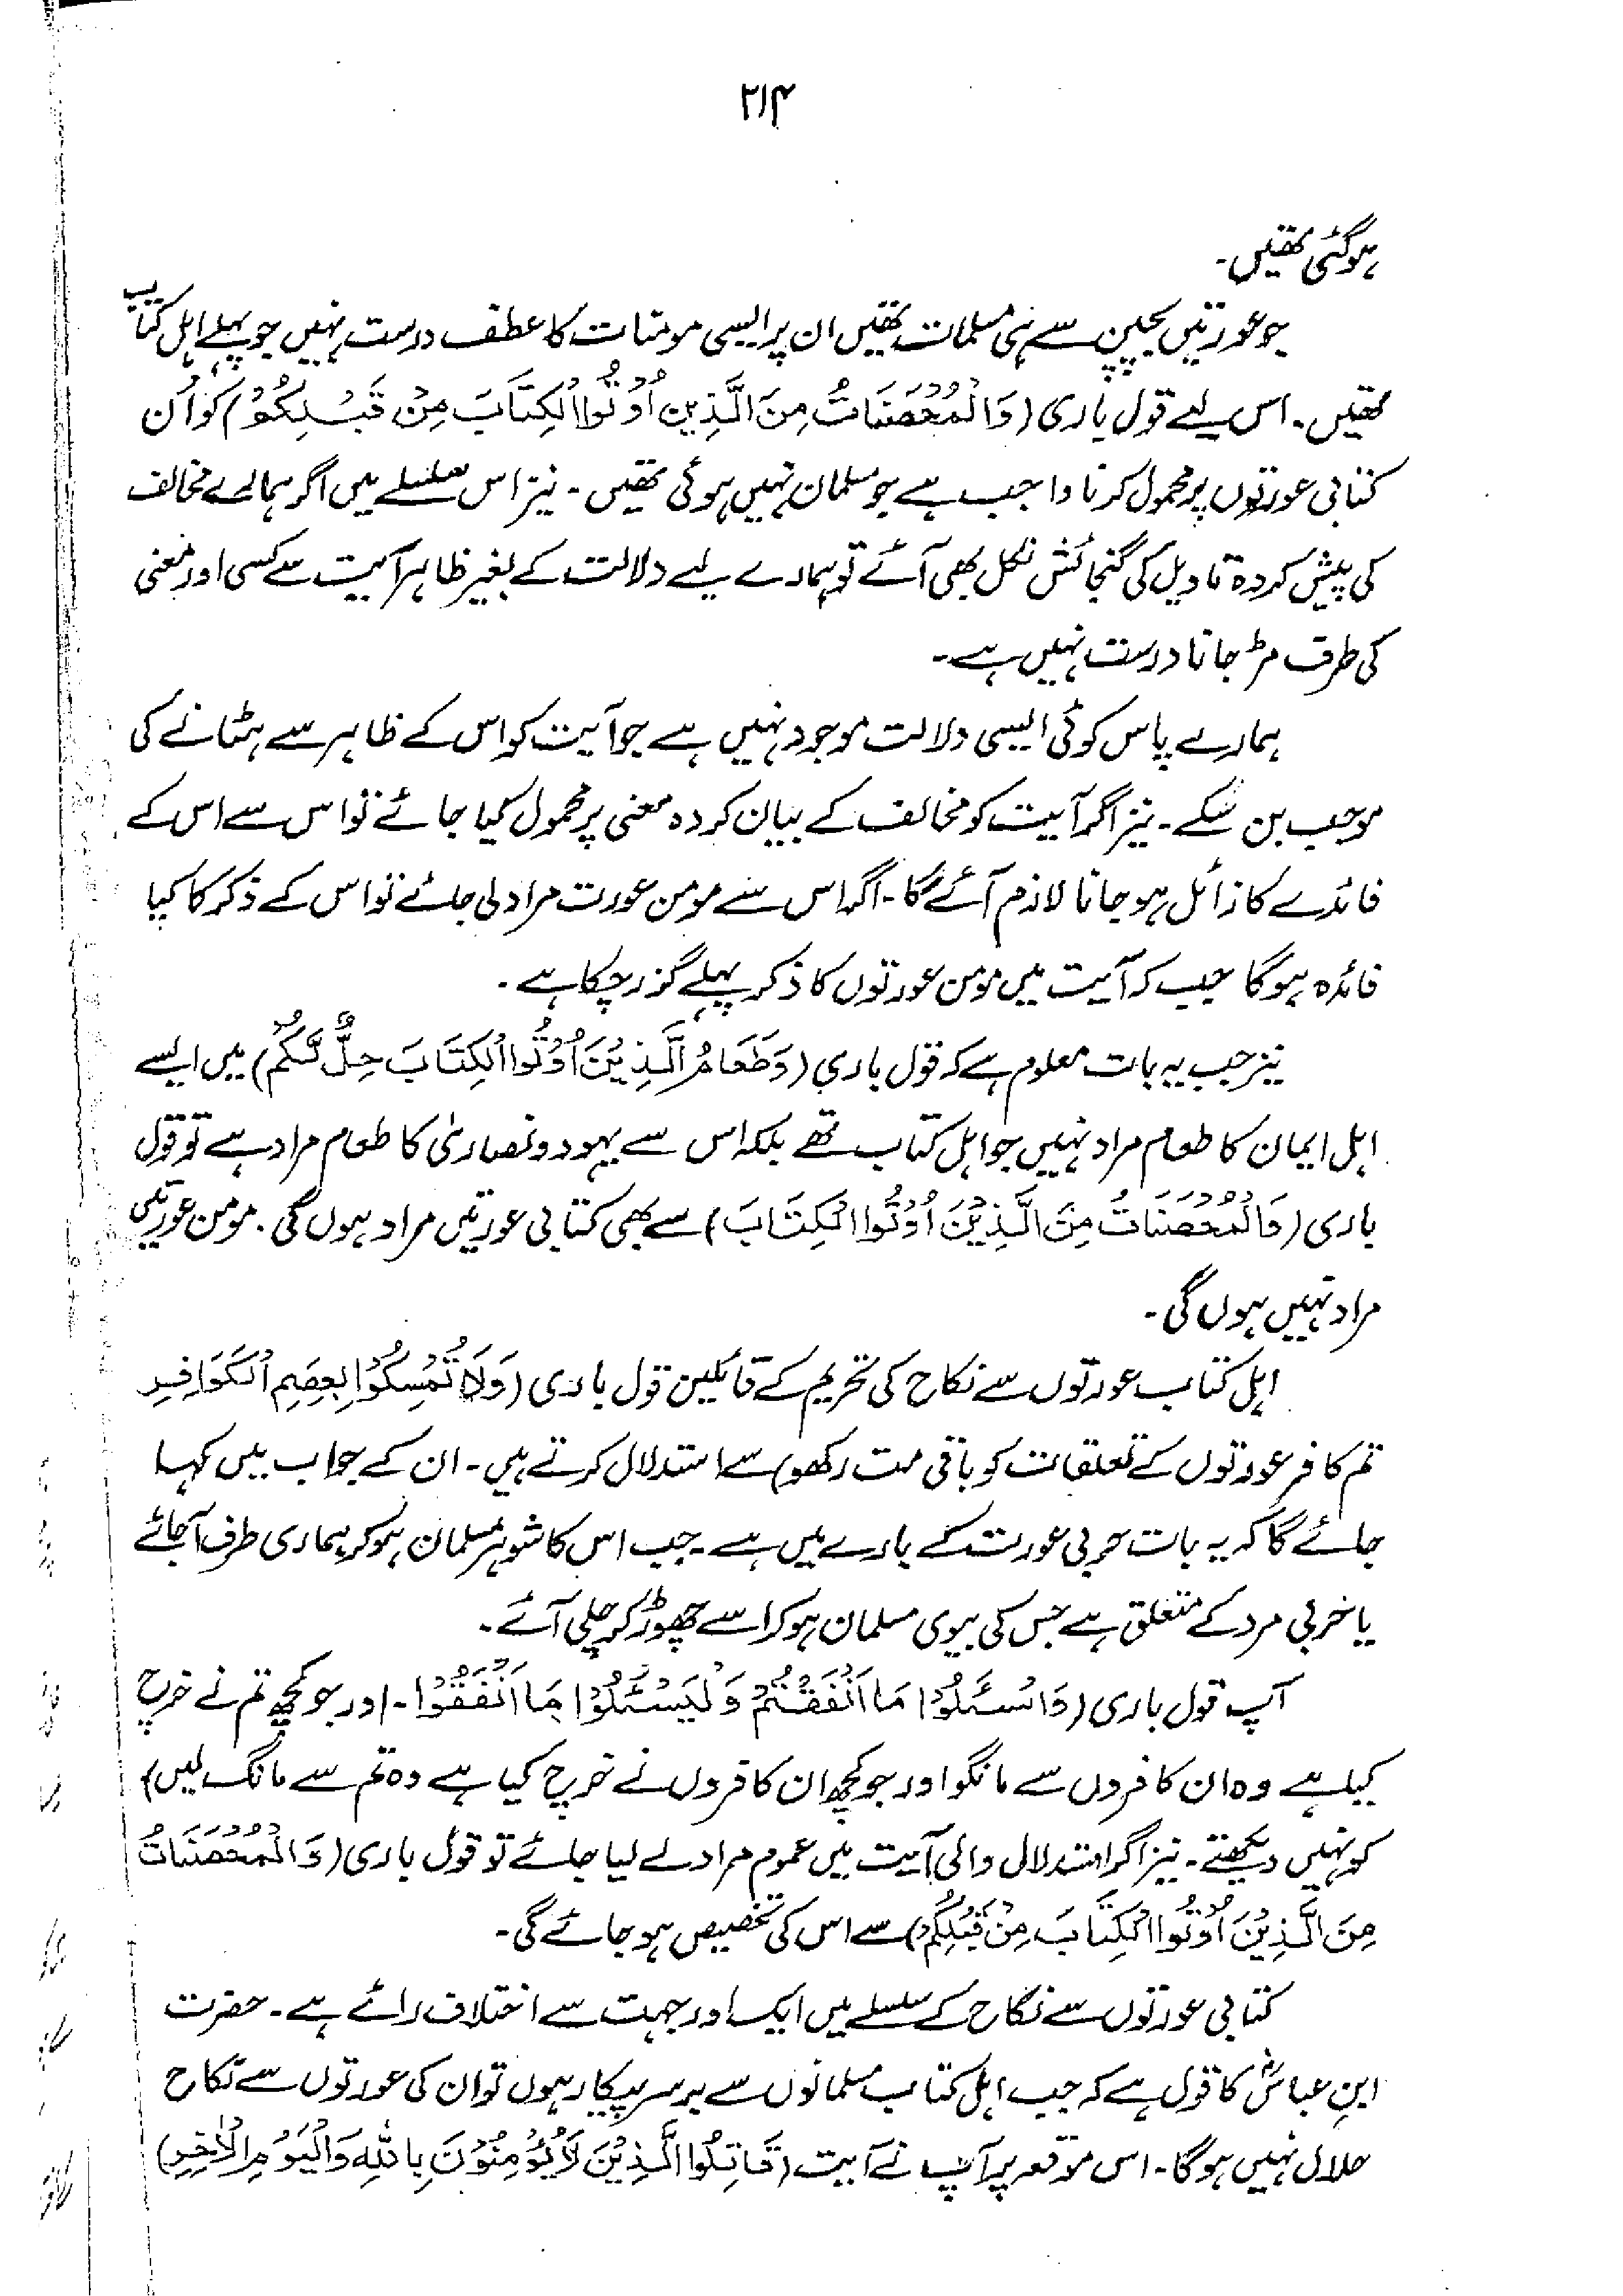 ۲۱۴
ہوگئی تھیں۔
جو عورتیں بچپن سے ہی مسلمان تھیں ان پر ایسی مومنات کا عطف درست نہیں جو پہلے اہل کتاب
تھیں۔ اس لیے قول باری (وَالْمُحْصَنَاتُ مِنَ الَّذِیْنَ اُوْتُوا الْکِتَابَ مِنْ قَبْلِکُمْ) کو اُن
کتابی عورتوں پر محمول کرنا واجب ہے جو مسلمان نہیں ہوئی تھیں۔ نیز اس سلسلے میں اگر ہمارے مخالف
کی پیش کردہ تاویل کی گنجائش نکل بھی آئے تو ہمارے لیے دلالت کے بغیر ظاہر آیت سے کسی اور معنی
کی طرف مڑ جانا درست نہیں ہے۔
ہمارے پاس کوئی ایسی دلالت موجود نہیں ہے جو آیت کو اس کے ظاہر سے ہٹانے کی
موجب بن سکے۔ نیز اگر آیت کو مخالف کے بیان کردہ معنی پر محمول کیا جائے تو اس سے اس کے
فائدے کا زائل ہو جانا لازم آئے گا۔ اگر اس سے مومن عورت مراد لی جائے تو اس کے ذکر کا کیا
فائدہ ہوگا جب کہ آیت میں مومن عورتوں کا ذکر پہلے گزر چکا ہے۔
نیز جب یہ بات معلوم ہے کہ قول باری (وَطَعَامُ الَّذِیْنَ اُوْتُوا الْکِتَابَ حِلٌّ لَّکُمْ) میں ایسے
اہل ایمان کا طعام مراد نہیں جو اہل کتاب تھے بلکہ اس سے یہود و نصاریٰ کا طعام مراد ہے تو قول
باری (وَالْمُحْصَنَاتُ مِنَ الَّذِیْنَ اُوْتُوا الْکِتَابَ) سے بھی کتابی عورتیں مراد ہوں گی۔ مومن عورتیں
مراد نہیں ہوں گی۔
اہل کتاب عورتوں سے نکاح کی تحریم کے قائلین قول باری (وَلَا تُمْسِکُوْا بِعِصَمِ الْکَوَافِرِ
تم کافر عورتوں کے تعلقات کو باقی مت رکھو) سے استدلال کرتے ہیں۔ ان کے جواب میں کہا
جائے گا کہ یہ بات حربی عورت کے بارے میں ہے۔ جب اس کا شوہر مسلمان ہو کر ہماری طرف آجائے
یا حربی مرد کے متعلق ہے جس کی بیوی مسلمان ہو کر اسے چھوڑ کر چلی آئے۔
آپ قول باری (وَاسْئَلُوْا مَا اَنْفَقْتُمْ وَلْیَسْئَلُوْا مَا اَنْفَقُوْا۔ اور جو کچھ تم نے خرچ
کیا ہے وہ ان کافروں سے مانگو اور جو کچھ ان کافروں نے خرچ کیا ہے وہ تم سے مانگ لیں)
کو نہیں دیکھتے۔ نیز اگر استدلال والی آیت میں عموم مراد لے لیا جائے تو قول باری (وَالْمُحْصَنَاتُ
مِنَ الَّذِیْنَ اُوْتُوا الْکِتَابَ مِنْ قَبْلِکُمْ) سے اس کی تخصیص ہو جائے گی۔
کتابی عورتوں سے نکاح کے سلسلے میں ایک اور جہت سے اختلاف رائے ہے۔ حضرت
ابن عباسؓ کا قول ہے کہ جب اہل کتاب مسلمانوں سے برسرپیکار ہوں تو ان کی عورتوں سے نکاح
حلال نہیں ہوگا۔ اس موقعہ پر آپ نے آیت (قَاتِلُوا الَّذِیْنَ لَا یُؤْمِنُوْنَ بِاللہِ وَالْیَوْمِ الْاٰخِرِ)